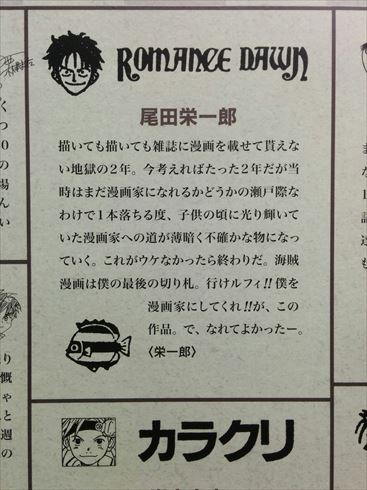 ROMANCE DAWN
尾田栄一郎
描いても描いても雑誌に漫画を載せて貰えな
い地獄の2年。今考えればたった2年だが当
時はまだ漫画家になれるかどうかの瀬戸際な
わけで1本落ちる度、子供の頃に光り輝いて
いた漫画家への道が薄暗く不確かな物になっ
ていく。これがウケなかったら終わりだ。海賊
漫画は僕の最後の切り札。行けルフィ!!僕を
漫画家にしてくれ!!が、この
作品。で、なれてよかったー。
〈栄一郎〉
カラクリ